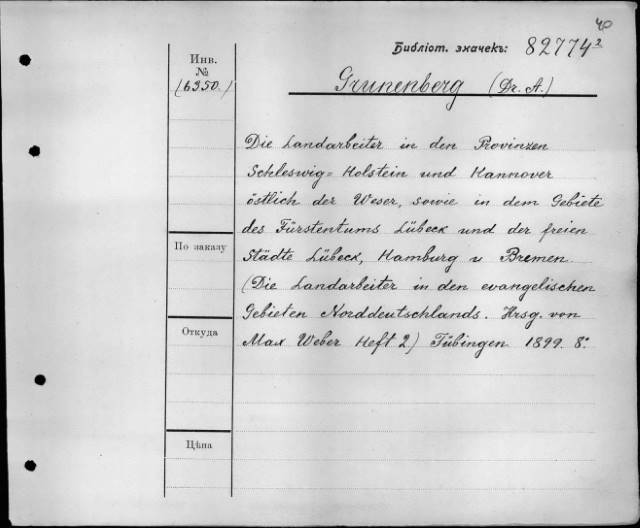 40
Библіот. значекъ: 82774²
Инв.
№
(6350.)
Grunenberg (Dr. A.)
Die Landarbeiter in den Provinzen
Schleswig=Holstein und Hannover
östlich der Weser, sowie in dem Gebiete
des Fürstentums Lübeck und der freien
Städte Lübeck, Hamburg u Bremen
(Die Landarbeiter in den evangelischen
Gebieten Norddeutschlands. Hrsg. von
Max Weber Heft 2) Tübingen 1899. 8°
По заказу
Откуда
Цѣна